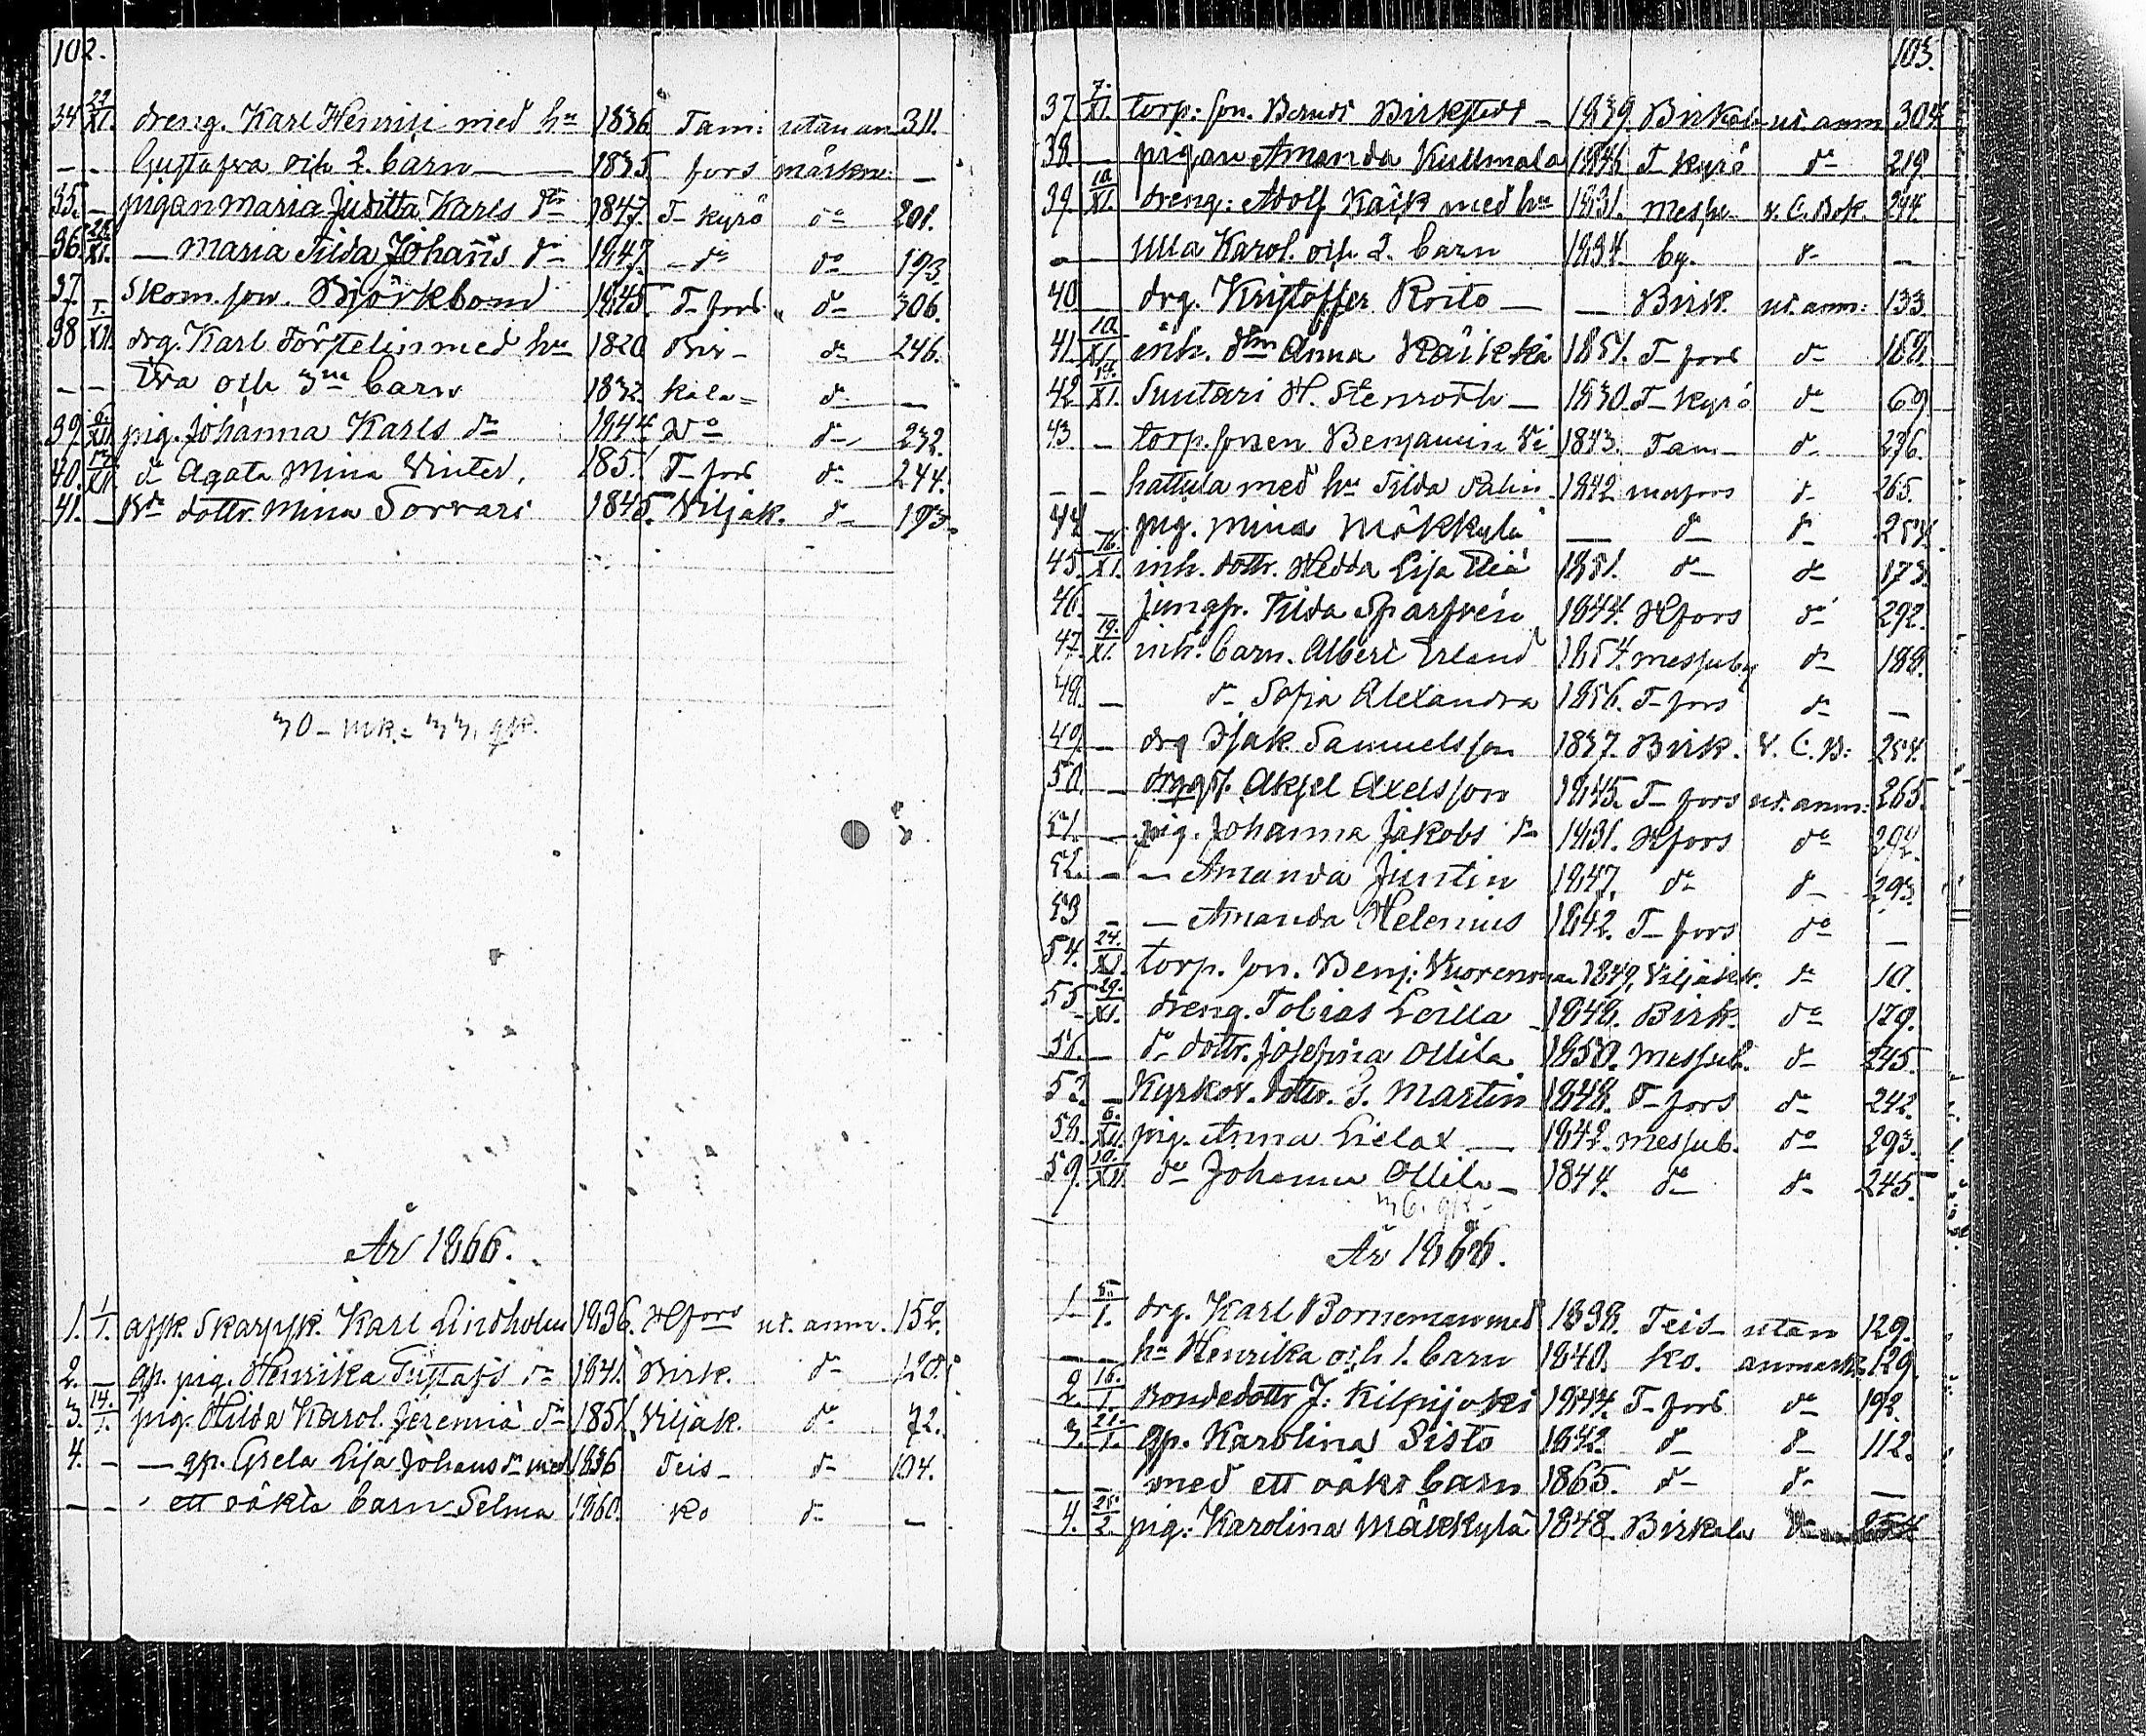 102.
34 27/XI. dreng. Karl Henrici med hu 1836 Tam: utan an 311.
- - Gustafva och 2. barn 1835 fors märkn: -
35. - pigan Maria Juditta Karls dr 1847. T-kyrö do 201.
36. 28/XI. - Maria Tilda Johans dr 1847. - do do 193
37 - Skom. son. Björkbom 1845. T-fors do 306.
38 1./XII. drg. Karl Törstelin med hu 1820 Bir- do 246.
- - Eva och 3ne barn 1832. kala= do -
39 6./XII pig. Johanna Karls dr 1844 do do 232.
40. XII. do Agata Mina Winter. 1851 T-fors do 244.
41. - dottr. Mina Sorvari 1845. Viljak. do 193.
30 - mk. = 33. qk.
År 1866.
1. 1/1. Karl Lindholm 1836. Hfors ut. anm. 152.
2. - gp. pig. Henrika Gustafs dr 1841. Birk. do 128.
3. 14./1. pig. Hilda Karol. Jeremiä dr 1851. Viljak. do 72.
4. - - gp. Greta Lisa Johans dr med 1836 Teis- do 104.
- - ett oäkta barn Selma 1860. ko do -
103.
37. 7./XI. torp: son. Berndt Birkstedt - 1839. Birkala ut. anm 304.
38. - pigan Amanda Kullmala 1846 T-kyrö do 219
39. 10/XI. dreng: Adolf Kaik med hu 1831. Messu- v. C. Bok. 294
- - Ulla Karol. och 2. barn 1834. by. do -
40 - drg. Kristoffer Roito - - Birk. ut. anm: 133
41. 10./XI. inh. dtrn Anna Räikkä 1851. T-fors do 168.
42 14./XI. Suutari H. Stenroth - 1830. T-kyrö do 69
43. - torp. sonen Benjamin Vi 1843. Tam- do 236.
- - hattula med hu Tilda Palin 1842 do 265.
44 - pig. Mina Mäkkylä - do do 254.
45. 16./XI. inh. dottr. Hedda Lisa Eliä 1851. do do 173.
46. - Jungfr. Tilda Sparfvén 1844. Hfors do 292.
47. 19./XI. inh. barn. Albert Erland 1854. Messuby do 188.
48. - do Sofia Alexandra 1856. T-fors do -
49. - drg Isak Samuelsson 1837. Birk. v. C. B: 254.
50. - Aksel Axelsson 1845. T-fors ut. anm: 265.
51. - pig. Johanna Jakobs dr 1831. Hfors do 292.
52. - - Amanda Juntin 1847. do do 293.
53 - - Amanda Helenius 1842. T-fors do -
54. 24./XI. torp. son. Benj: Vuorenmaa 1849, Viljakk. do 10.
55 29./XI. dreng. Tobias Leilla 1848. Birk. do 179.
56. - do dottr. Josefina Ollila 1850. Messub. do 245.
57. - Kyrkov. dottr. S. Martin 1848. T-fors do 242.
58. 6./XII. pig. Anna Lielax - 1842. Messub. do 293.
59. 10./XII. do Johanna Ollila - 1844. do do 245.
36. qk.
År 1866.
1. 5./1. drg. Karl Borneman med 1838. Teis- utan 129.
- - hu Henrika och 1. barn 1840. ko. anmärkn 129
2. 16./1. Bondedottr J: Kilpijoki 1844. T-fors do 192.
3. 21./1. gp. Karolina Sisto 1842. do do 112.
- - med ett oäkt barn 1865. do do -
4. 25./2. pig: Karolina Mäkkylä 1848. Birkala do 254